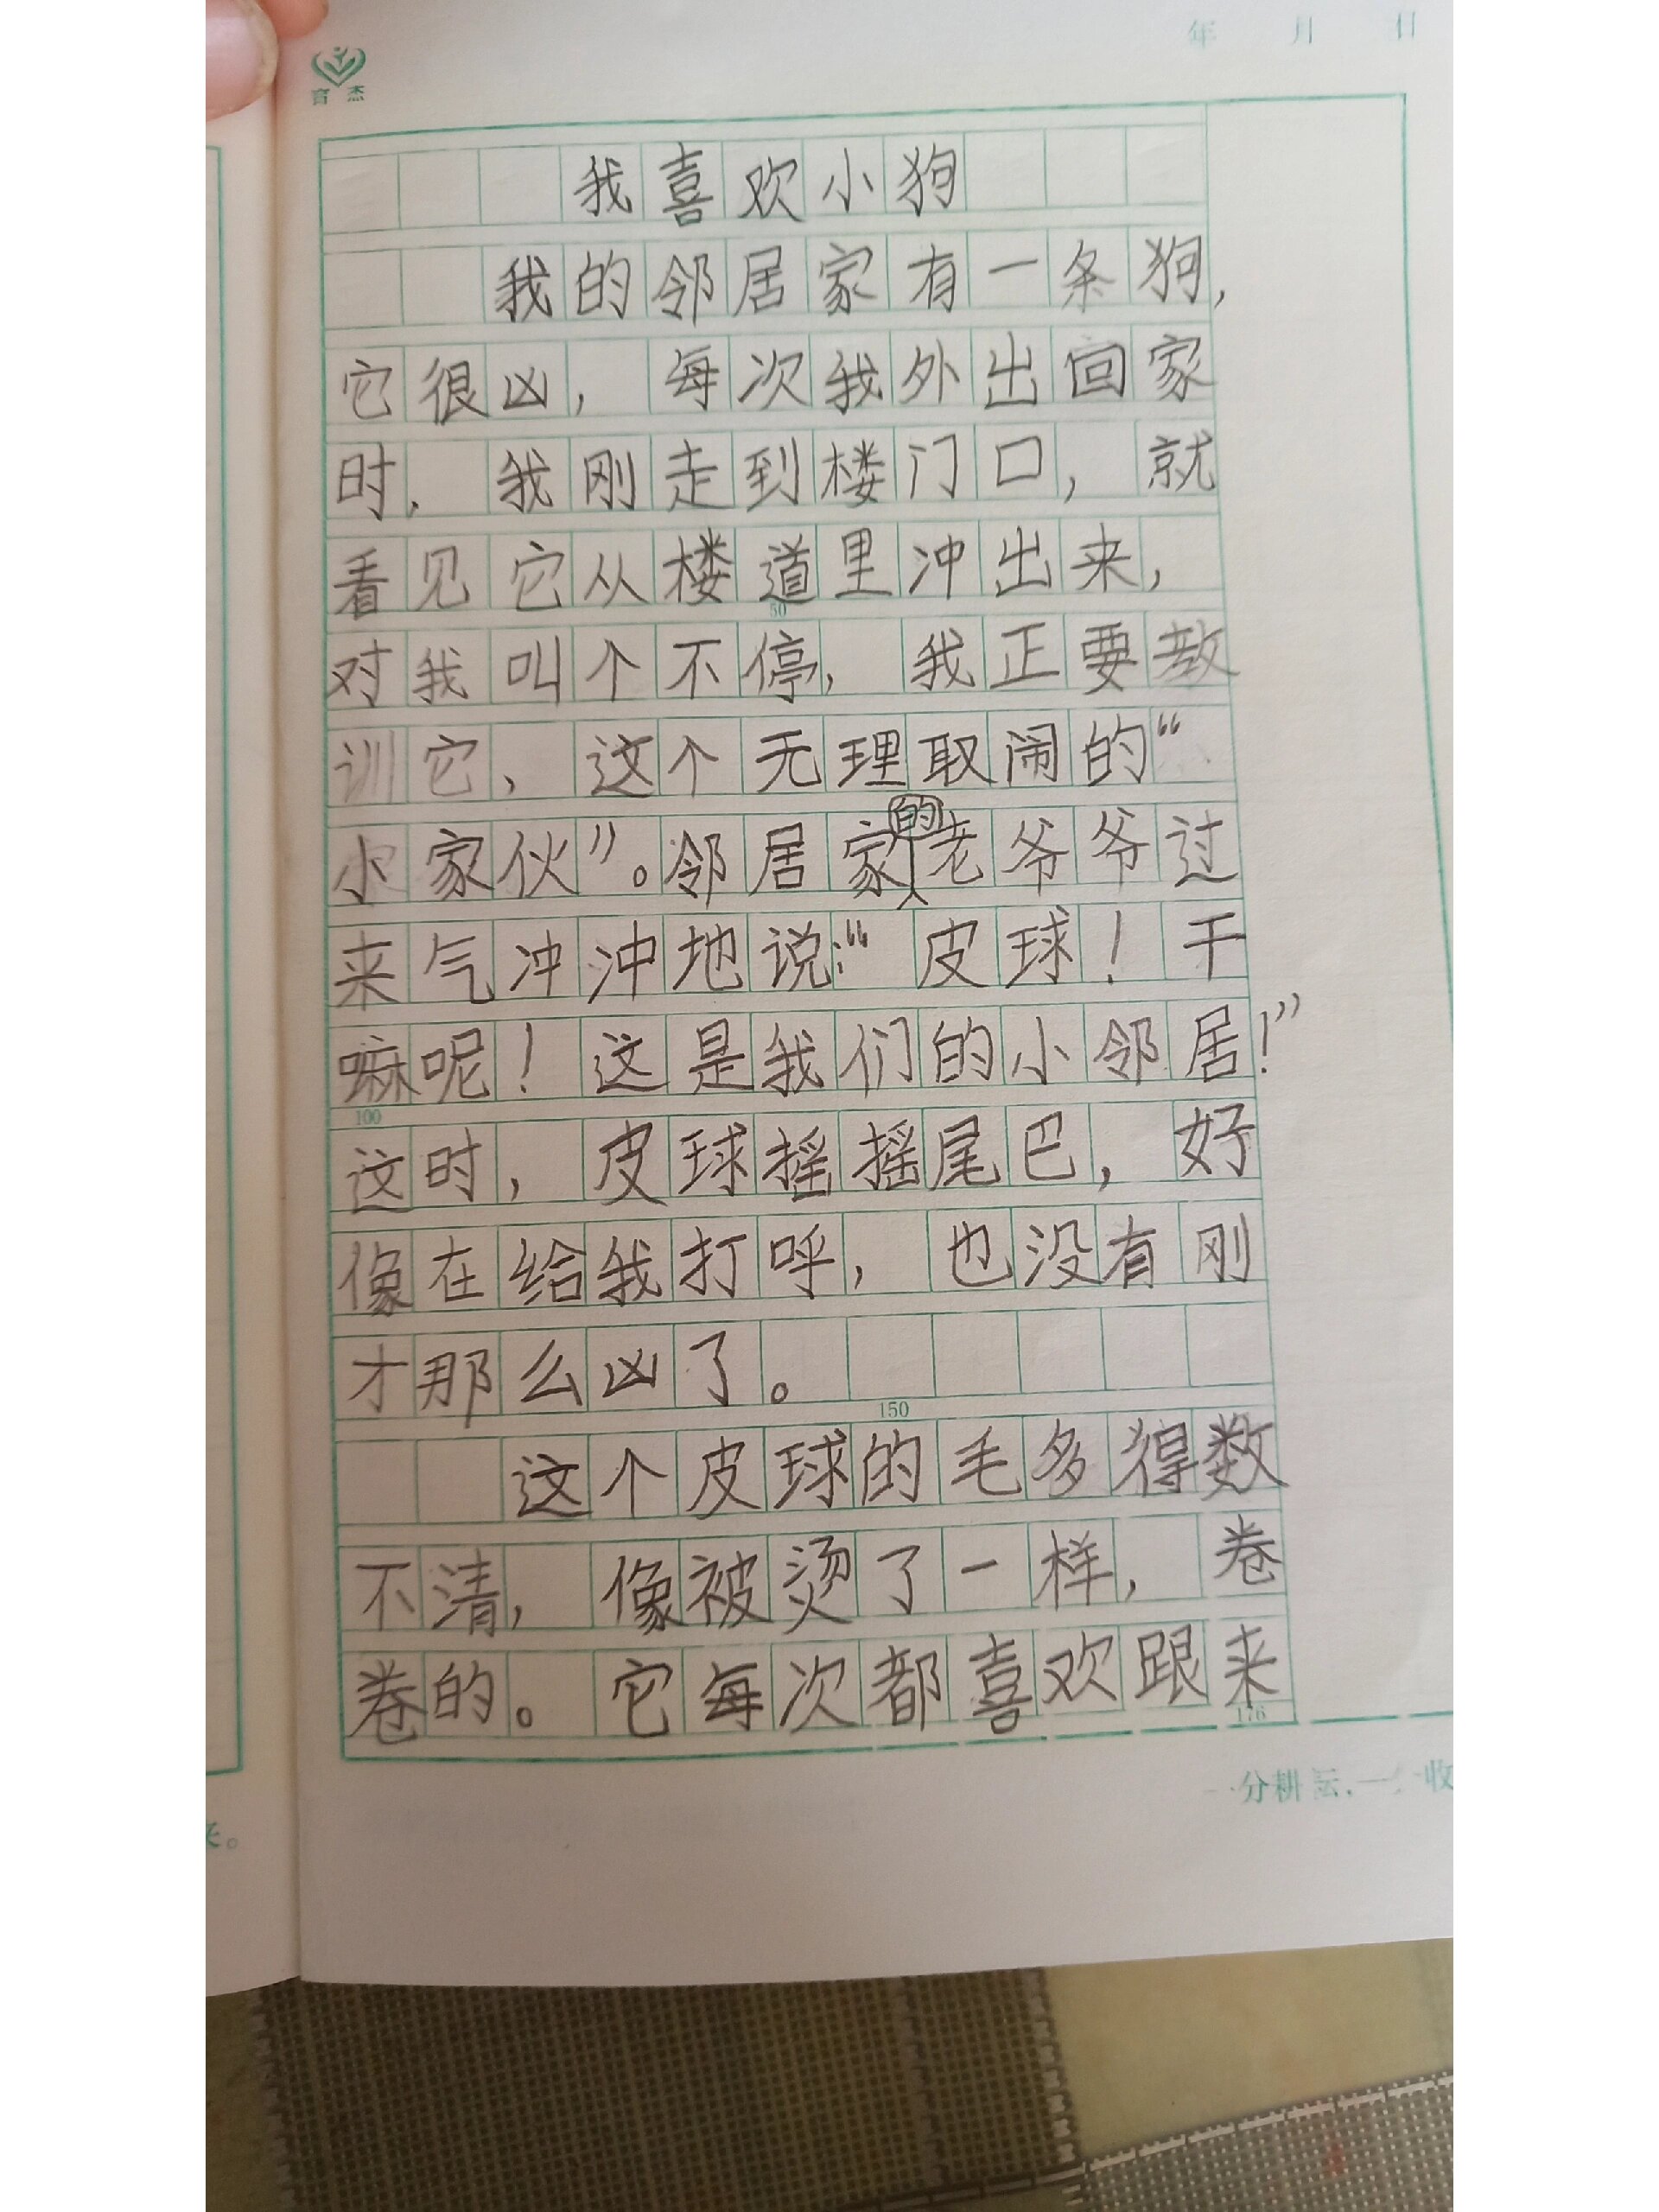 年 月 日
育杰
我喜欢小狗
我的邻居家有一条狗,
它很凶,每次我外出回家
时,我刚走到楼门口,就
看见它从楼道里冲出来,
对我叫个不停,我正要教
训它、这个无理取闹的“
小家伙”。邻居家的老爷爷过
来气冲冲地说:“皮球!干
嘛呢!这是我们的小邻居!”
这时,皮球摇摇尾巴,好
像在给我打呼,也没有刚
才那么凶了。
这个皮球的毛多得数
不清,像被烫了一样,卷
卷的。它每次都喜欢跟来
50
100
150
176
分耕耘,一 收